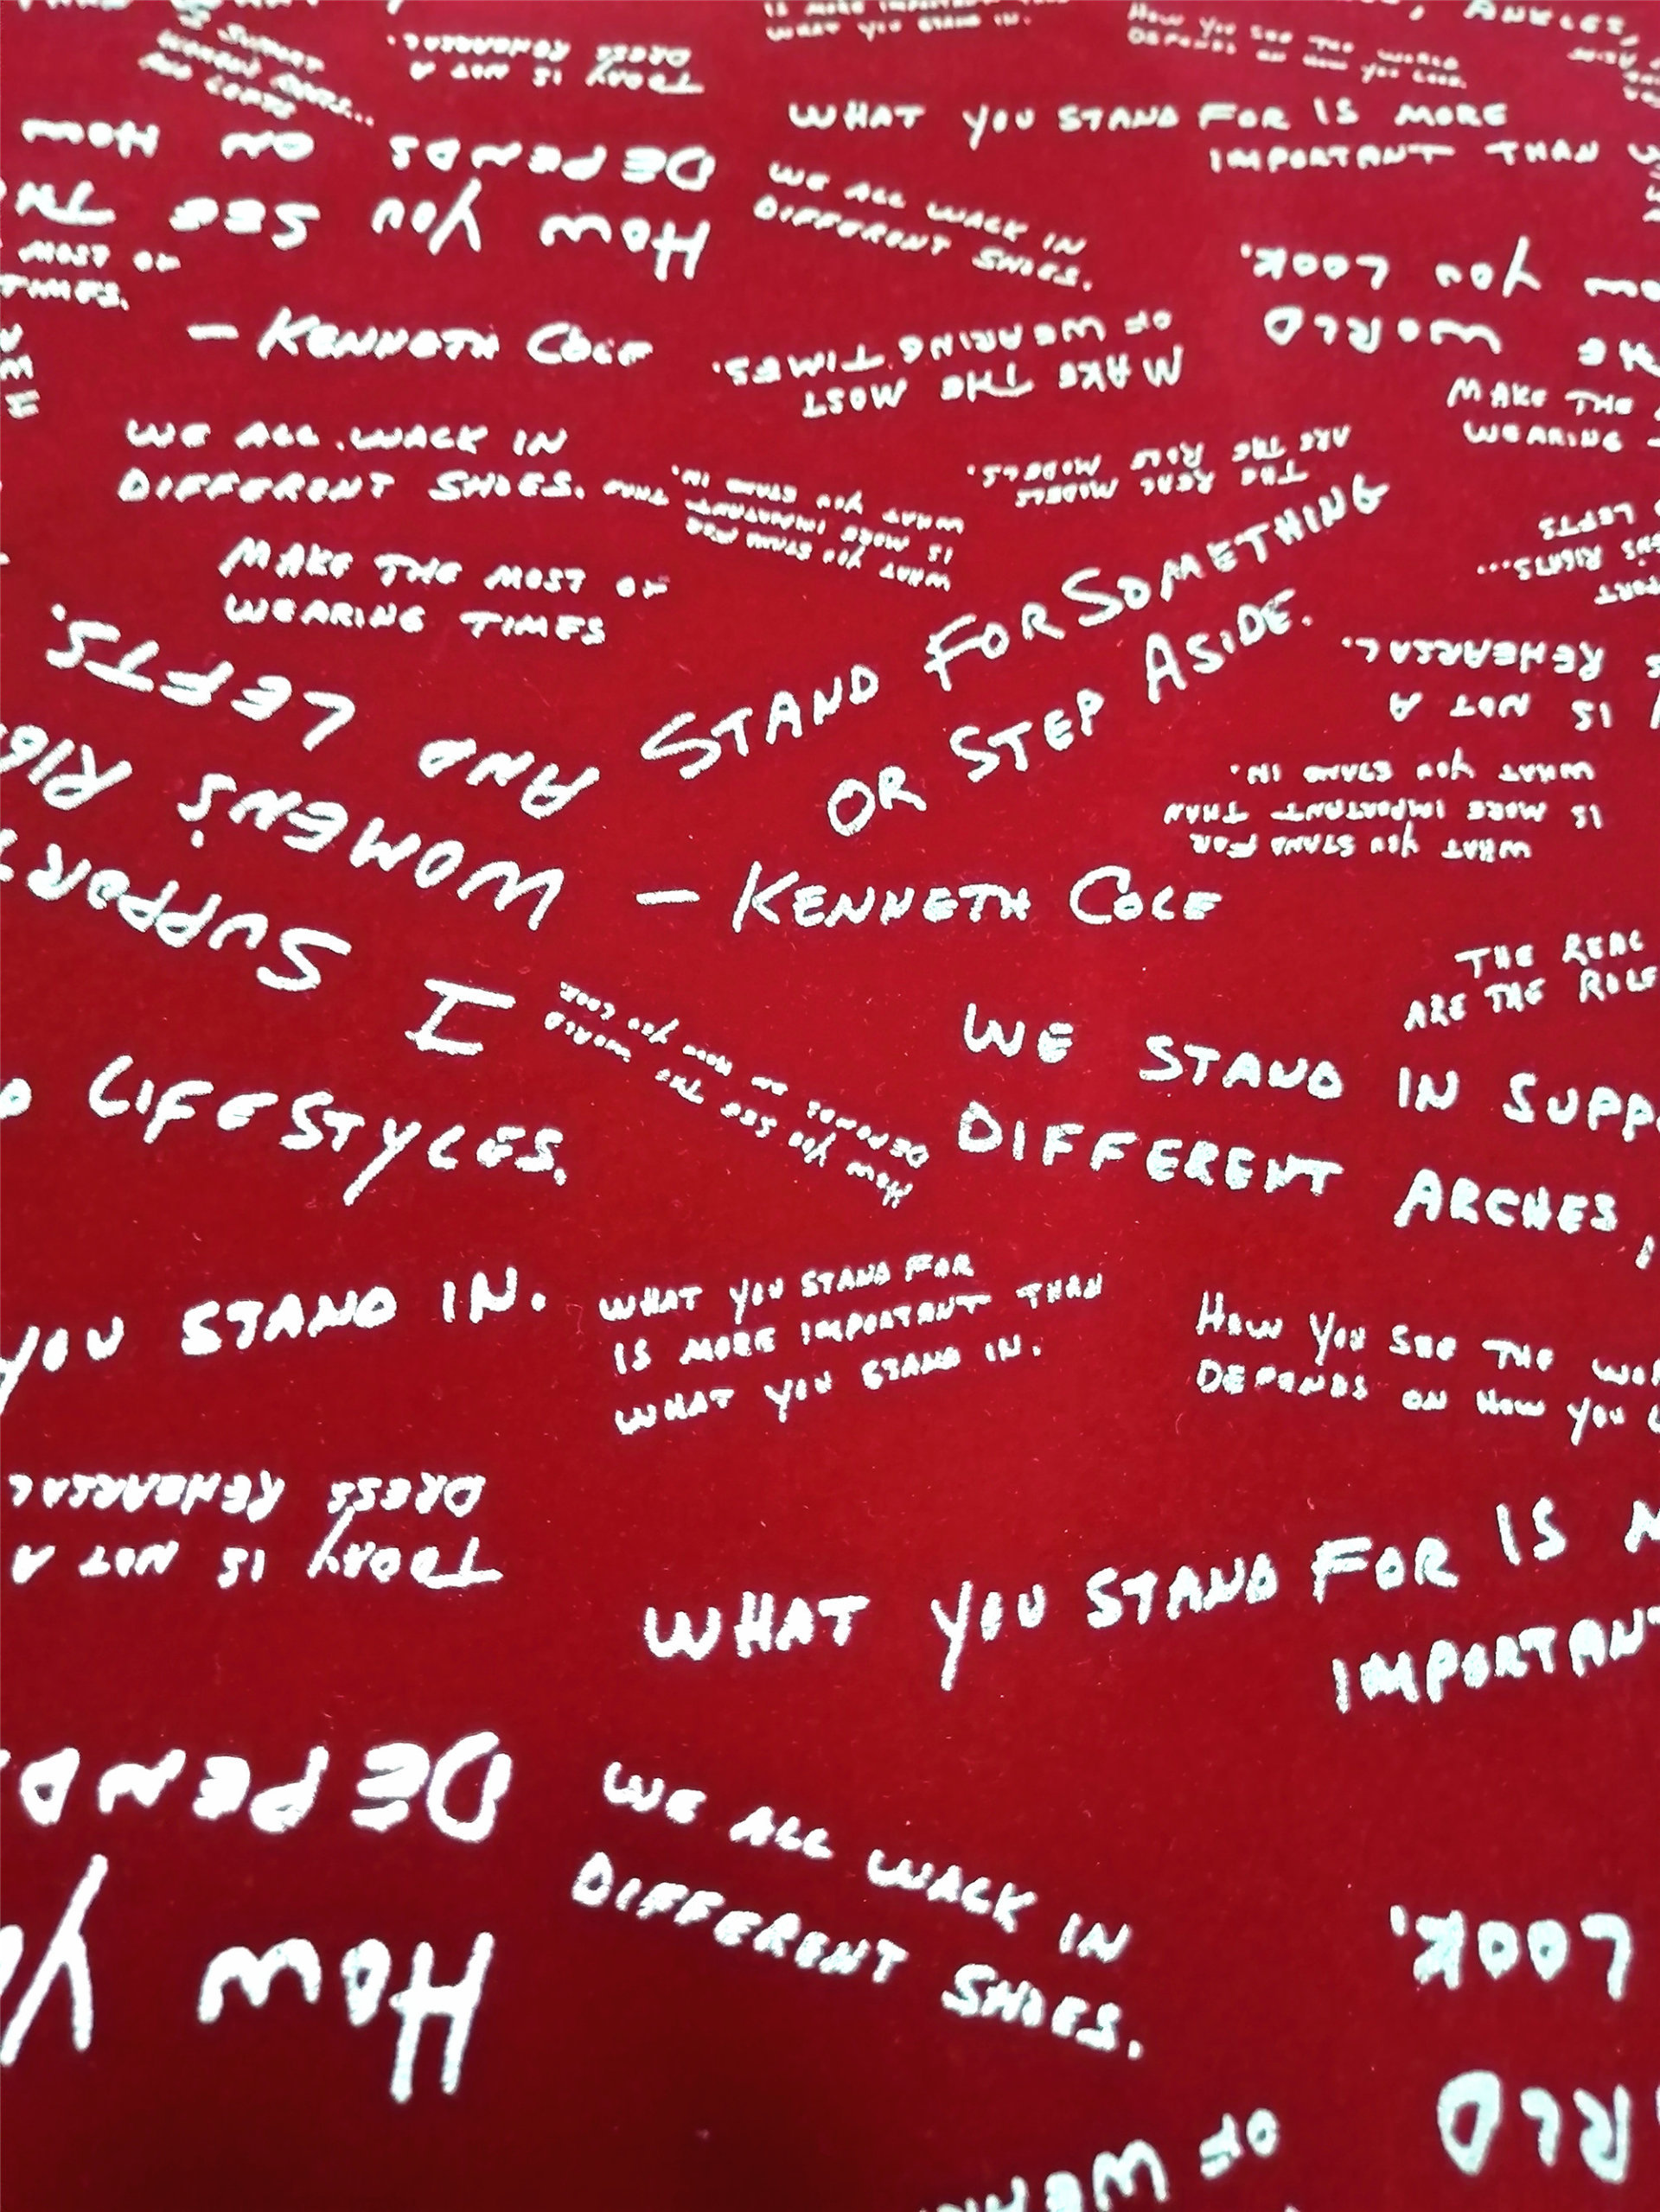 IS MORE IMPORTANT
WHAT YOU STAND IN.
HOW YOU SEE THE WORLD
DEPENDS ON HOW YOU LOOK.
ANKLES,
I SUPPORT
WOMEN'S RIGHTS...
AND LEFTS
TODAY IS NOT A
DRESS REHEARSAL.
WHAT YOU STAND FOR IS MORE
IMPORTANT THAN
HOW YOU SEE
DEPENDS ON HOW
WE ALL WALK IN
DIFFERENT SHOES.
MOST OF
TIMES.
WORLD
YOU LOOK.
— KENNETH COLE
MAKE THE MOST
OF WEARING TIMES.
MAKE THE
WEARING
WE ALL WALK IN
DIFFERENT SHOES.
WHAT YOU STAND FOR
IS MORE IMPORTANT THAN
WHAT YOU STAND IN.
THE REAL MODELS
ARE THE ROLE MODELS.
RIGHTS...
LEFTS
MAKE THE MOST OF
WEARING TIMES
STAND FOR SOMETHING
OR STEP ASIDE.
— KENNETH COLE
IS NOT A
REHEARSAL.
I SUPPORT
WOMEN'S
AND LEFTS.
WHAT YOU STAND FOR
IS MORE IMPORTANT THAN
WHAT YOU STAND IN.
THE REAL
ARE THE ROLE
HOW YOU SEE THE WORLD
DEPENDS ON HOW YOU LOOK.
WE STAND IN
DIFFERENT ARCHES,
LIFESTYLES.
YOU STAND IN.
WHAT YOU STAND FOR
IS MORE IMPORTANT THAN
WHAT YOU STAND IN.
HOW YOU SEE THE
DEPENDS ON HOW YOU
TODAY IS NOT A
DRESS REHEARSAL
WHAT YOU STAND FOR IS
IMPORTANT
HOW
DEPENDS
WE ALL WALK IN
DIFFERENT SHOES.
LOOK.
OF